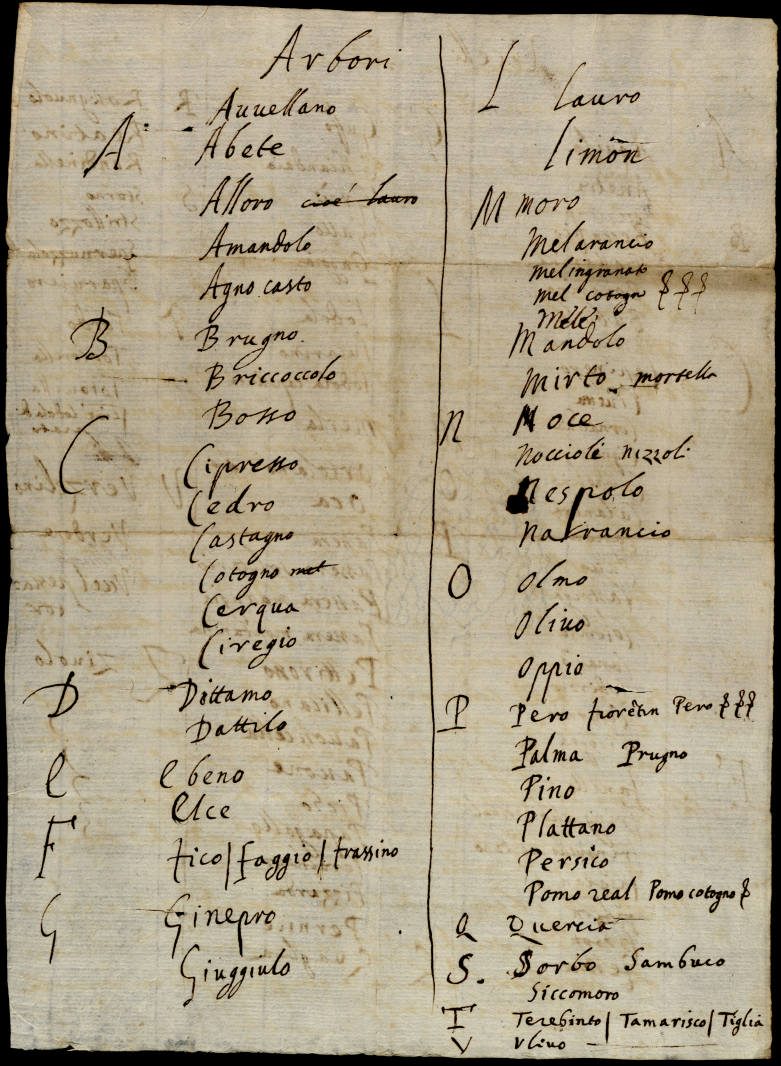 Arbori
Auuellano
A: Abete
Alloro cioè lauro
Amandolo
Agno casto
B Brugno
Briccoccolo
Bosso
C Cipresso
Cedro
Castagno
Cotogno mel
Cerqua
Ciregio
D Dittamo
Dattilo
E Ebeno
Elce
F fico / faggio / frassino
G Ginepro
Giuggiulo
L lauro
limōn
M moro
Melarancio
melingranato
mel cotogn
Mele
Mandolo
Mirto mortella
N Noce
Nocciole nizzoli
Nespolo
Narrancio
O Olmo
Oliuo
Oppio
P Pero fiorētin Pero
Palma Prugno
Pino
Plattano
Persico
Pomo real Pomo cotogno
Q Quercia
S. Sorbo Sambuco
Siccomoro
T Terebinto / Tamarisco / Tiglia
V Vliuo